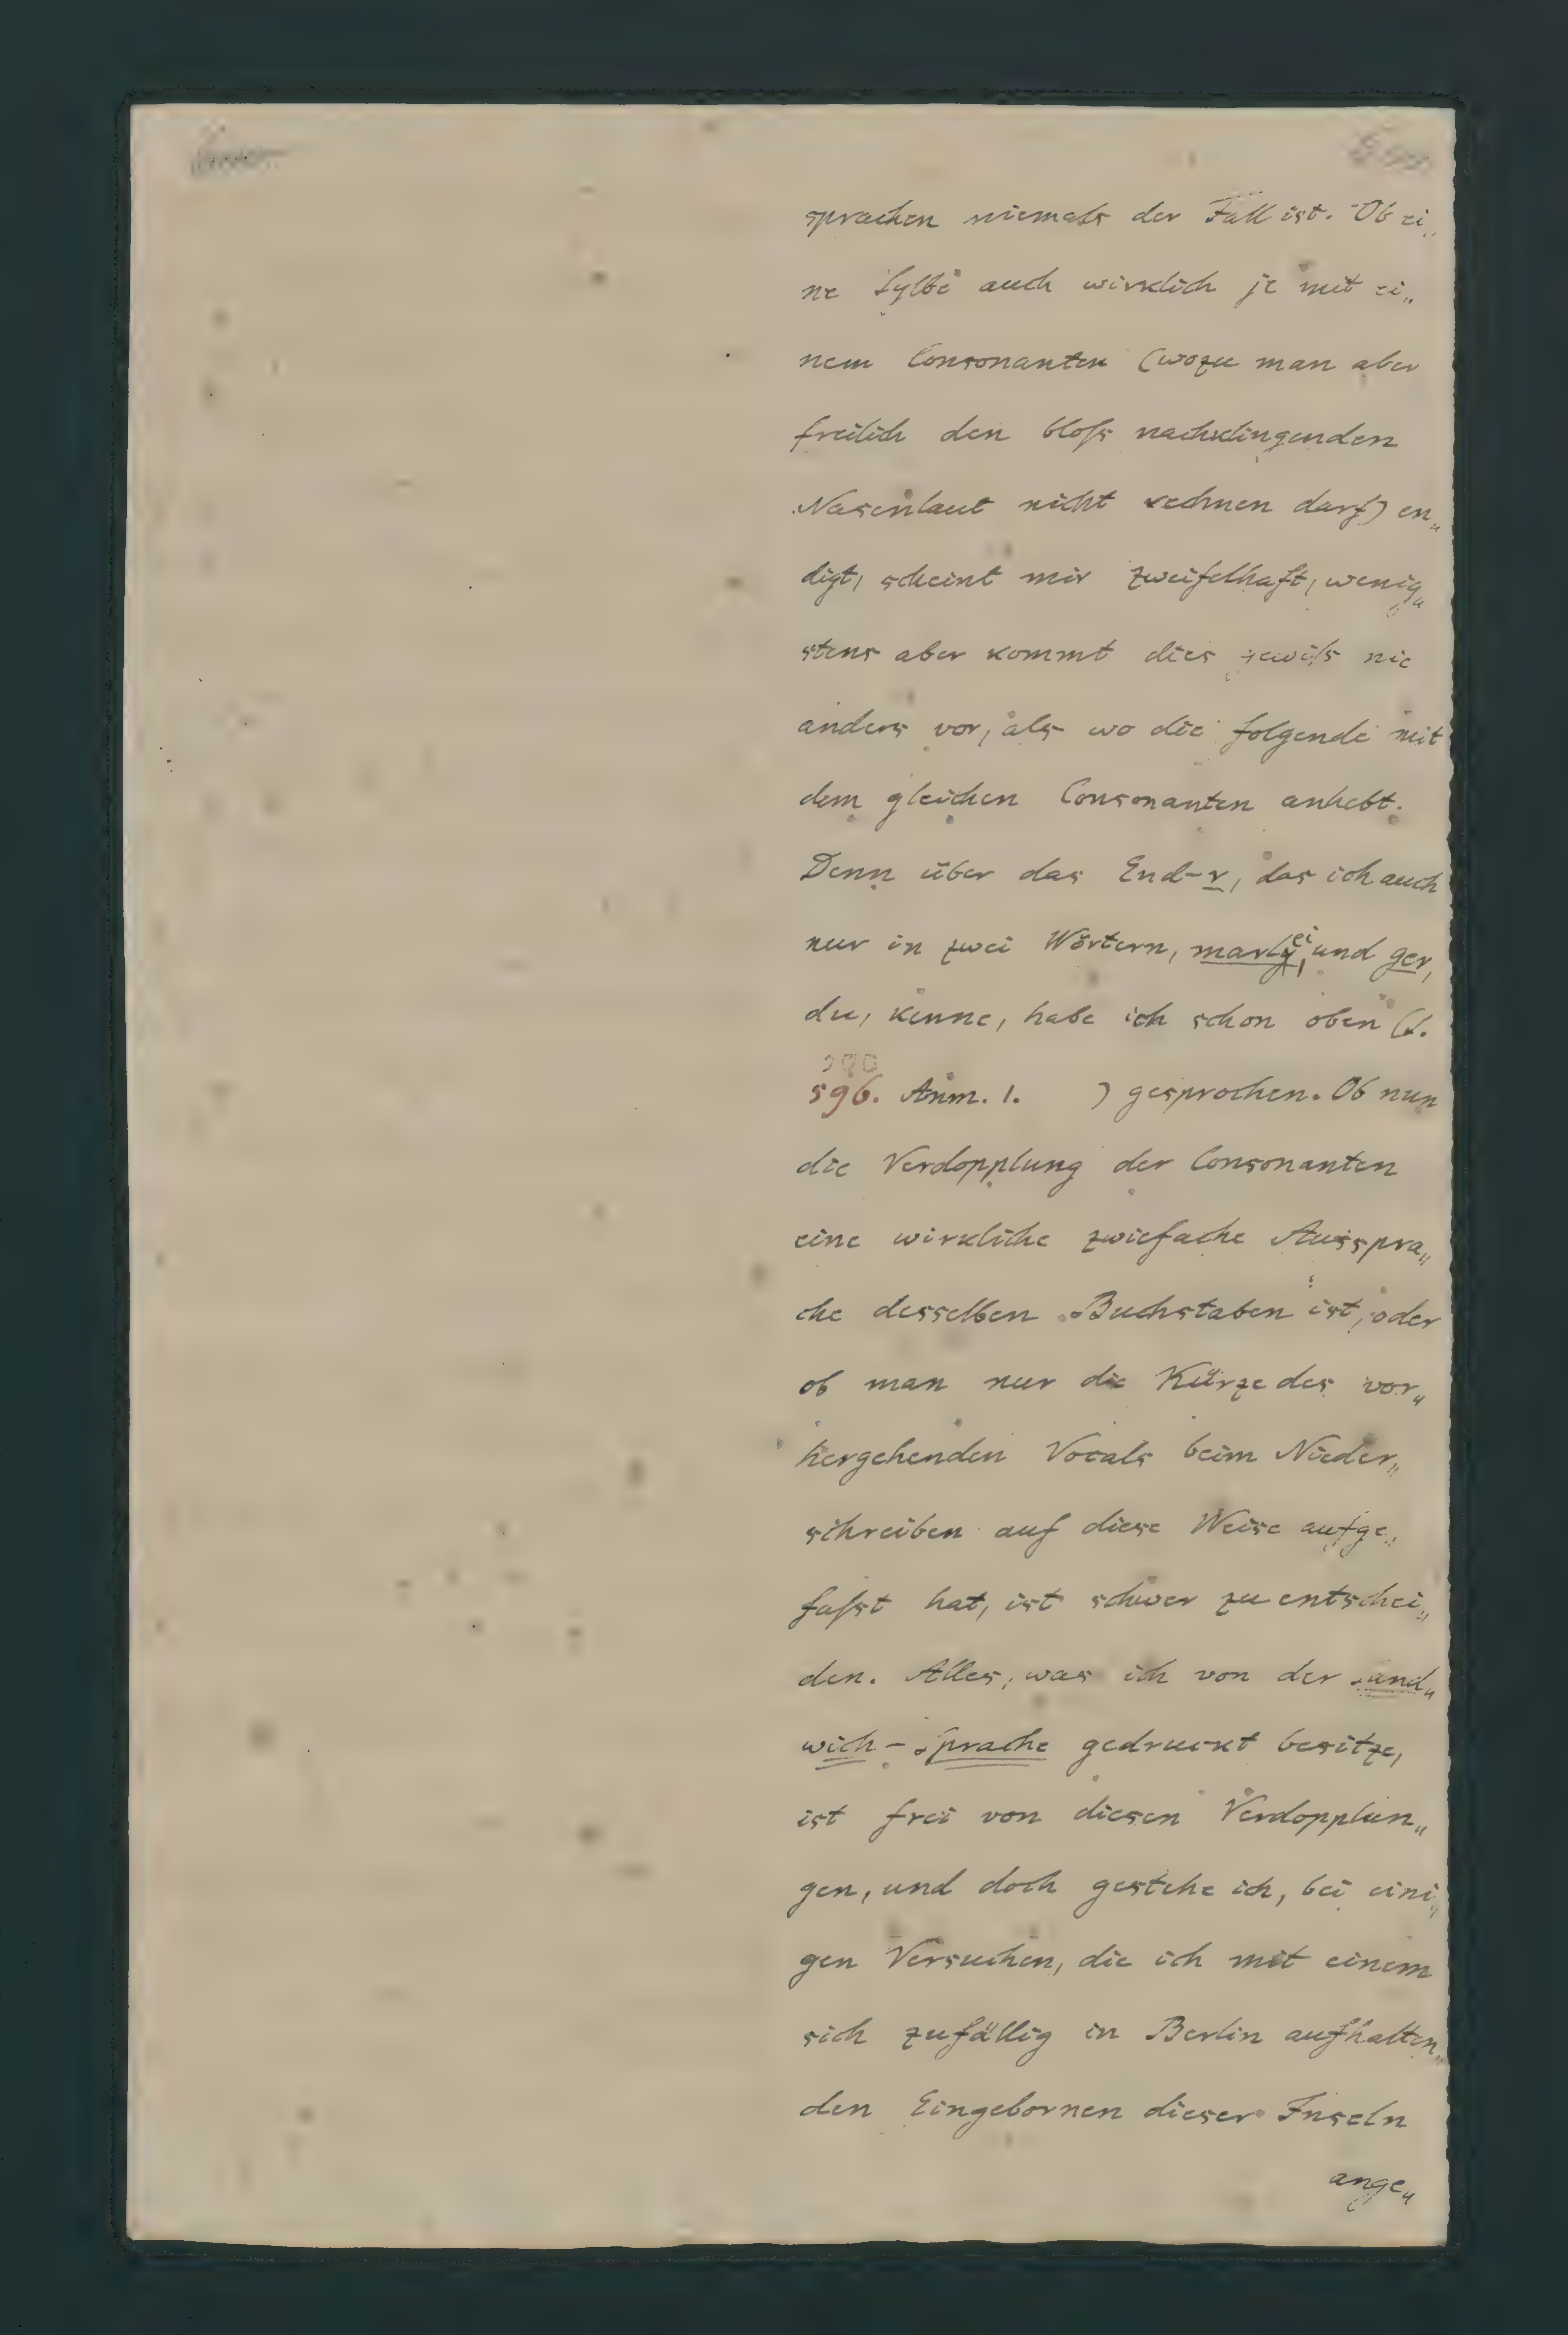 sprachen niemals der Fall ist. Ob ei„
ne Sylbe auch wirklich je mit ei„
nem Consonanten (wozu man aber
freilich den bloſs nachklingenden
Nasenlaut nicht rechnen darf) en„
digt, scheint mir zweifelhaft, wenig„
stens aber kommt dies gewiſs nie
anders vor, als wo die folgende mit
dem gleichen Consonanten anhebt.
Denn über das End-r, das ich auch
nur in zwei Wörtern, und ger,
du, kenne, habe ich schon oben (S.
596. Anm. 1. ) gesprochen. Ob nun
die Verdopplung der Consonanten
eine wirkliche zwiefache Ausspra„
che desselben Buchstaben ist, oder
ob man nur die Kürze des vor„
hergehenden Vocals beim Nieder„
schreiben auf diese Weise aufge„
faſst hat, ist schwer zu entschei„
den. Alles, was ich von der Sand„
wich-Sprache gedruckt besitze,
ist frei von diesen Verdopplun„
gen, und doch gestehe ich, bei eini„
gen Versuchen, die ich mit einem
sich zufällig in Berlin aufhalten„
den Eingebornen dieser Inseln
ange„